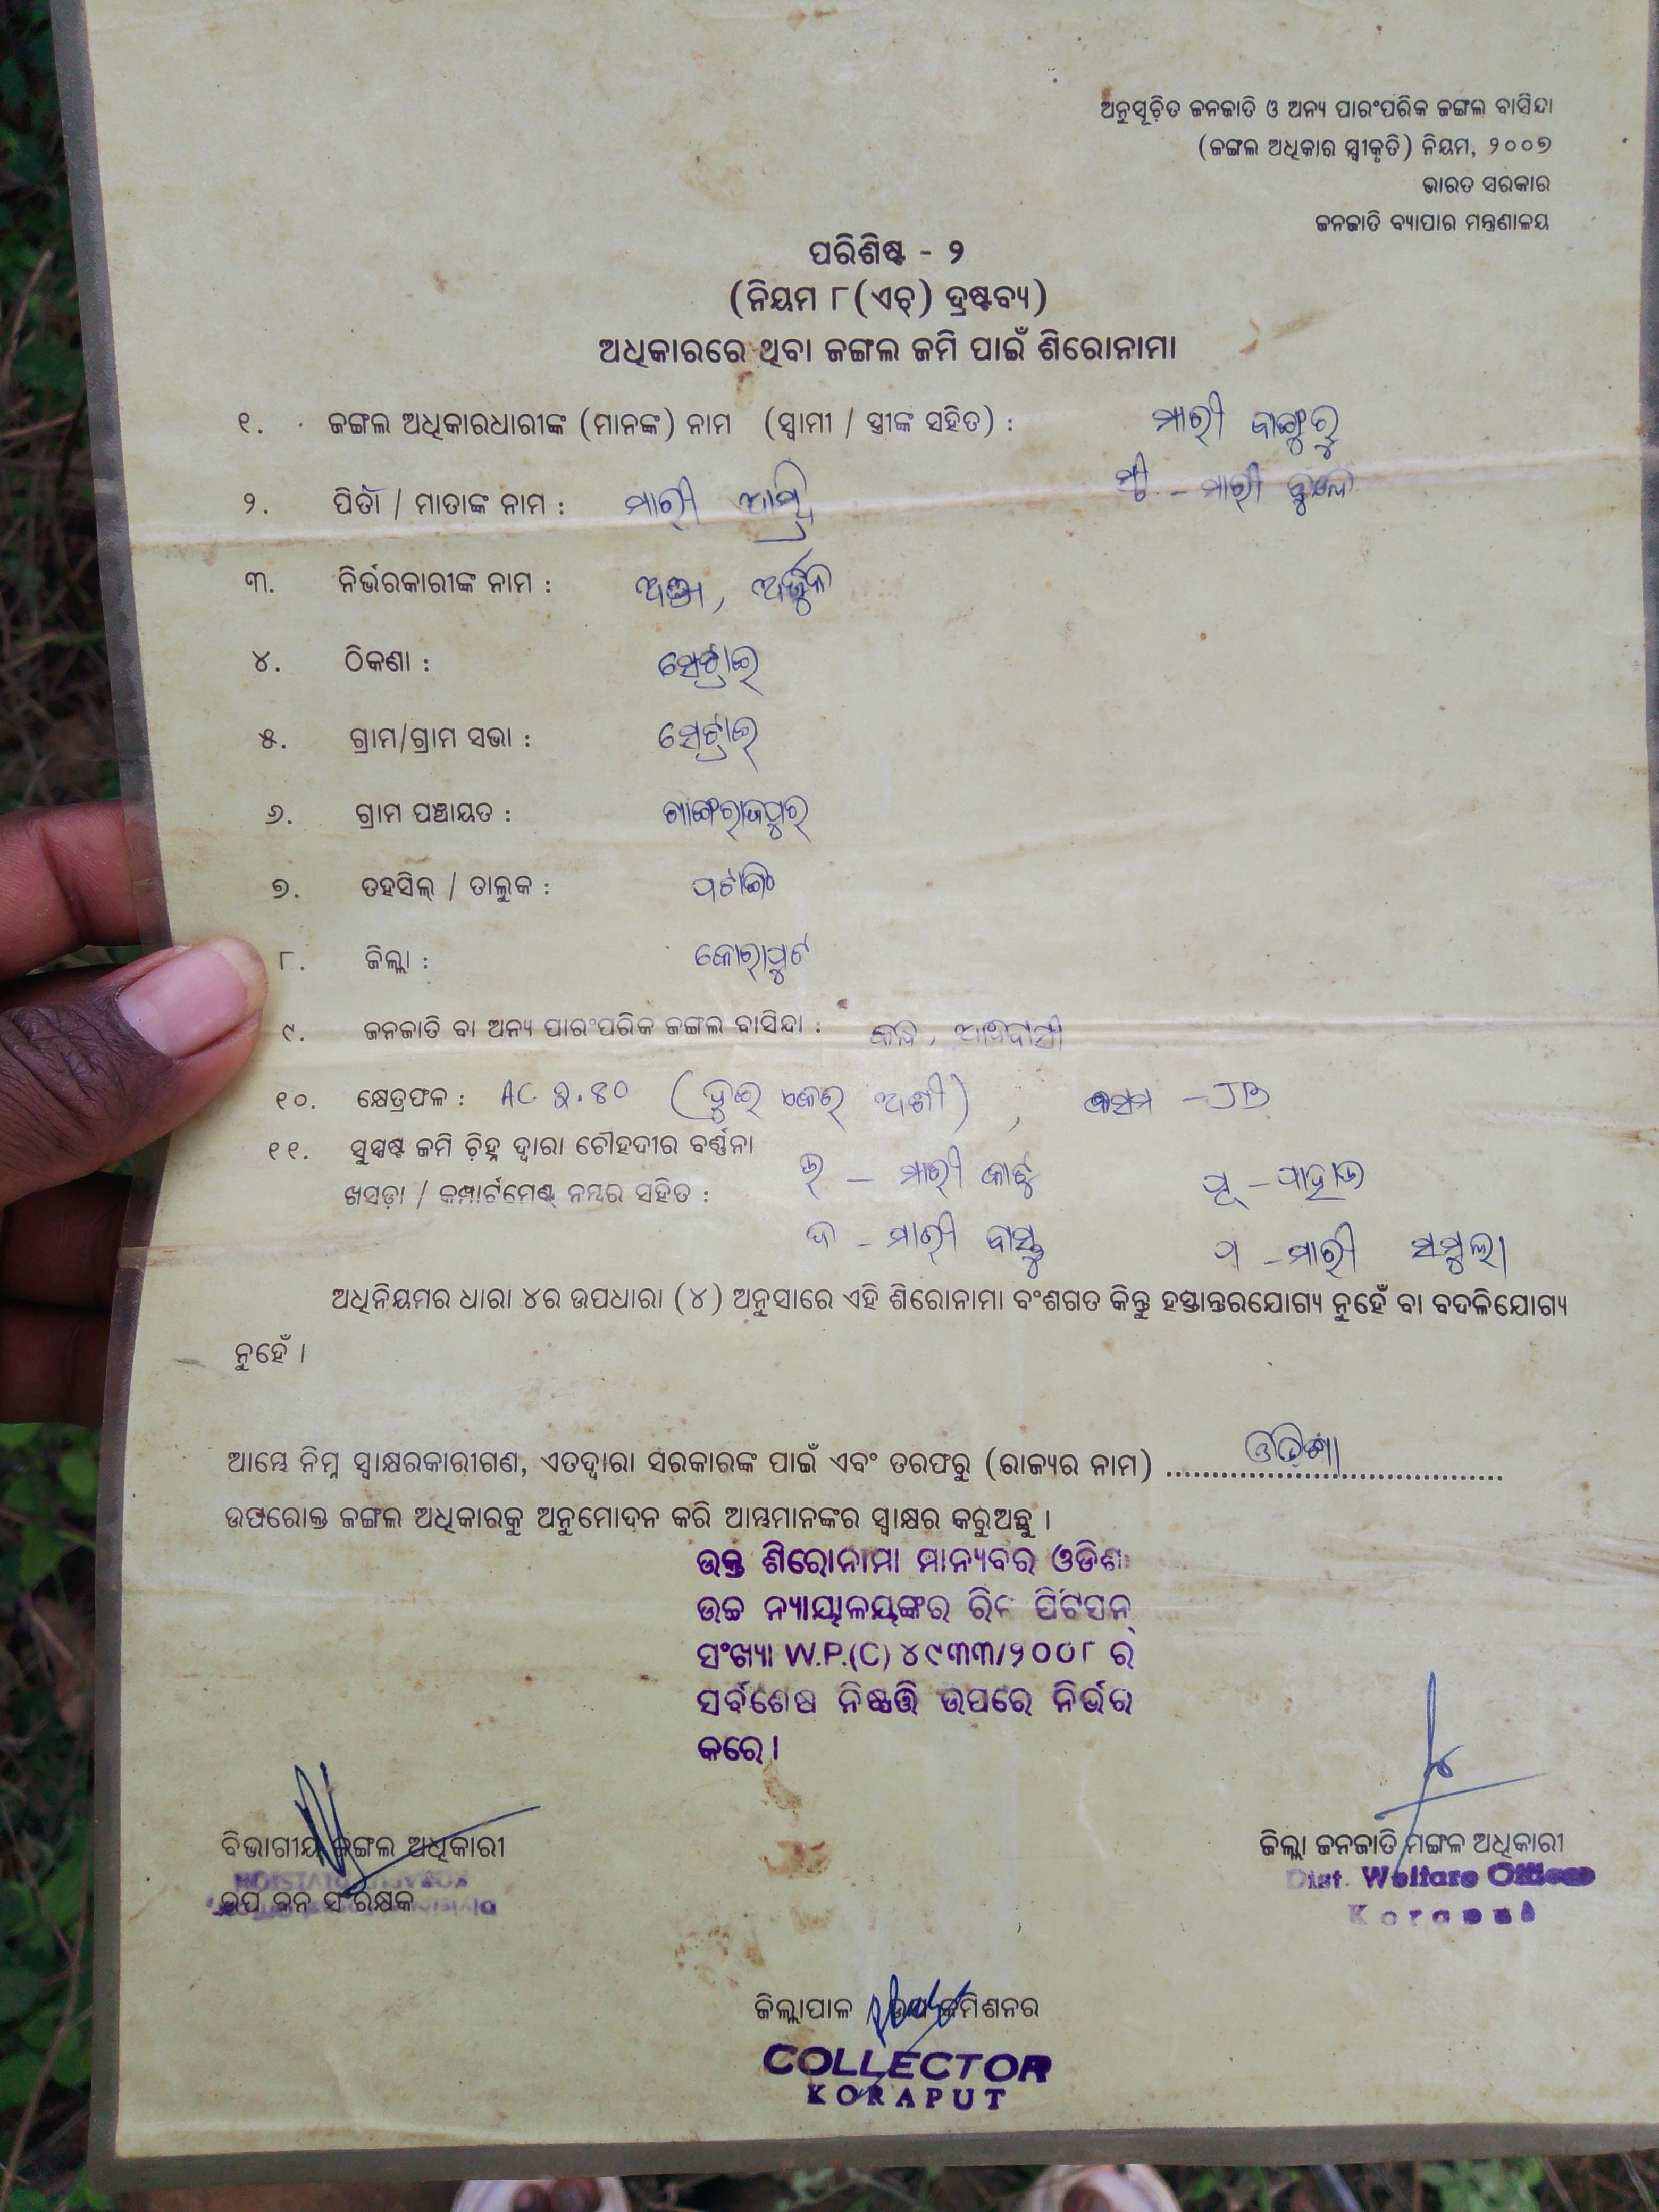 ଅନୁସୂଚିତ ଜନଜାତି ଓ ଅନ୍ୟ ପାରଂପରିକ ଜଙ୍ଗଲ ବାସିନ୍ଦା
(ଜଙ୍ଗଲ ଅଧିକାର ସ୍ୱୀକୃତି) ନିୟମ, ୨୦୦୭
ଭାରତ ସରକାର
ଜନଜାତି ବ୍ୟାପାର ମନ୍ତ୍ରଣାଳୟ
ପରିଶିଷ୍ଟ - ୨
(ନିୟମ ୮(ଏଚ୍) ଦ୍ରଷ୍ଟବ୍ୟ)
ଅଧିକାରରେ ଥିବା ଜଙ୍ଗଲ ଜମି ପାଇଁ ଶିରୋନାମା
୧. ଜଙ୍ଗଲ ଅଧିକାରଧାରୀଙ୍କ (ମାନଙ୍କ) ନାମ (ସ୍ୱାମୀ / ସ୍ତ୍ରୀଙ୍କ ସହିତ) : ମାରୀ
ମାରୀ
୨. ପିତା / ମାତାଙ୍କ ନାମ : ମାରୀ
୩. ନିର୍ଭରକାରୀଙ୍କ ନାମ :
୪. ଠିକଣା :
୫. ଗ୍ରାମ/ଗ୍ରାମ ସଭା :
୬. ଗ୍ରାମ ପଞ୍ଚାୟତ :
୭. ତହସିଲ୍ / ତାଲୁକ : ପଟାଙ୍ଗି
୮. ଜିଲ୍ଲା : କୋରାପୁଟ
୯. ଜନଜାତି ବା ଅନ୍ୟ ପାରଂପରିକ ଜଙ୍ଗଲ ବାସିନ୍ଦା : ଆଦିବାସୀ
୧୦. କ୍ଷେତ୍ରଫଳ : AC ୨.୮୦ (ଦୁଇ ଏକର ଅଶୀ),
୧୧. ସୁସ୍ପଷ୍ଟ ଜମି ଚିହ୍ନ ଦ୍ୱାରା ଚୌହଦୀର ବର୍ଣ୍ଣନା
ଖସଡ଼ା / କମ୍ପାର୍ଟମେଣ୍ଟ ନମ୍ବର ସହିତ : ଉ - ମାରୀ ପୂ - ପାହାଡ
ଦ - ମାରୀ ପ - ମାରୀ
ଅଧିନିୟମର ଧାରା ୪ର ଉପଧାରା (୪) ଅନୁସାରେ ଏହି ଶିରୋନାମା ବଂଶଗତ କିନ୍ତୁ ହସ୍ତାନ୍ତରଯୋଗ୍ୟ ନୁହେଁ ବା ବଦଳିଯୋଗ୍ୟ
ନୁହେଁ ।
ଆମ୍ଭେ ନିମ୍ନ ସ୍ୱାକ୍ଷରକାରୀଗଣ, ଏତଦ୍ୱାରା ସରକାରଙ୍କ ପାଇଁ ଏବଂ ତରଫରୁ (ରାଜ୍ୟର ନାମ) ଓଡିଶା
ଉପରୋକ୍ତ ଜଙ୍ଗଲ ଅଧିକାରକୁ ଅନୁମୋଦନ କରି ଆମ୍ଭମାନଙ୍କର ସ୍ୱାକ୍ଷର କରୁଅଛୁ ।
ଉକ୍ତ ଶିରୋନାମା ମାନ୍ୟବର ଓଡିଶା
ଉଚ୍ଚ ନ୍ୟାୟାଳୟଙ୍କର ରିଟ ପିଟିସନ୍
ସଂଖ୍ୟା W.P.(C) ୪୯୩୩/୨୦୦୮ ର
ସର୍ବଶେଷ ନିଷ୍ପତ୍ତି ଉପରେ ନିର୍ଭର
କରେ ।
ବିଭାଗୀୟ ଜଙ୍ଗଲ ଅଧିକାରୀ
ଉପ ବନ ସଂରକ୍ଷକ
ଜିଲ୍ଲା ଜନଜାତି ମଙ୍ଗଳ ଅଧିକାରୀ
Dist. Welfare Officer
Koraput
ଜିଲ୍ଲାପାଳ / ଉପ କମିଶନର
COLLECTOR
KORAPUT